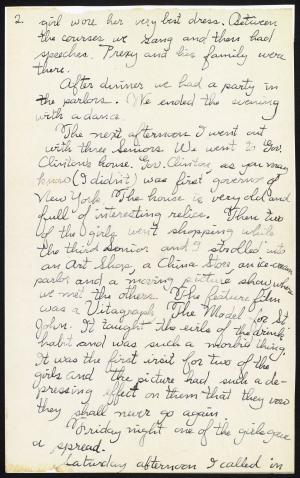 2. girl wore her very best dress. Between
the courses we sang and then had
speeches. Prexy and his family were
there.
After dinner we had a party in
the parlors. We ended the evening
with a dance.
The next afternoon I went out
with three Seniors. We went to Gov.
Clinton's house. Gov. Clinton, as you may
know (I didn't) was first governor of
New York. The house is very old and
full of interesting relics. Then two
of the girls went shopping while
the third senior and I strolled into
an Art Shop, a China Store, an ice-cream
parlor and a moving picture show where
we met the others. The feature film
was a Vitagraph "The Model for St.
John. It taught the evils of the drink
habit and was such a morbid thing.
It was the first visit for two of the
girls and the picture had such a de-
pressing effect on them that they vow
they shall never go again.
Friday night one of the girls gave
a spread.
Saturday afternoon I called in